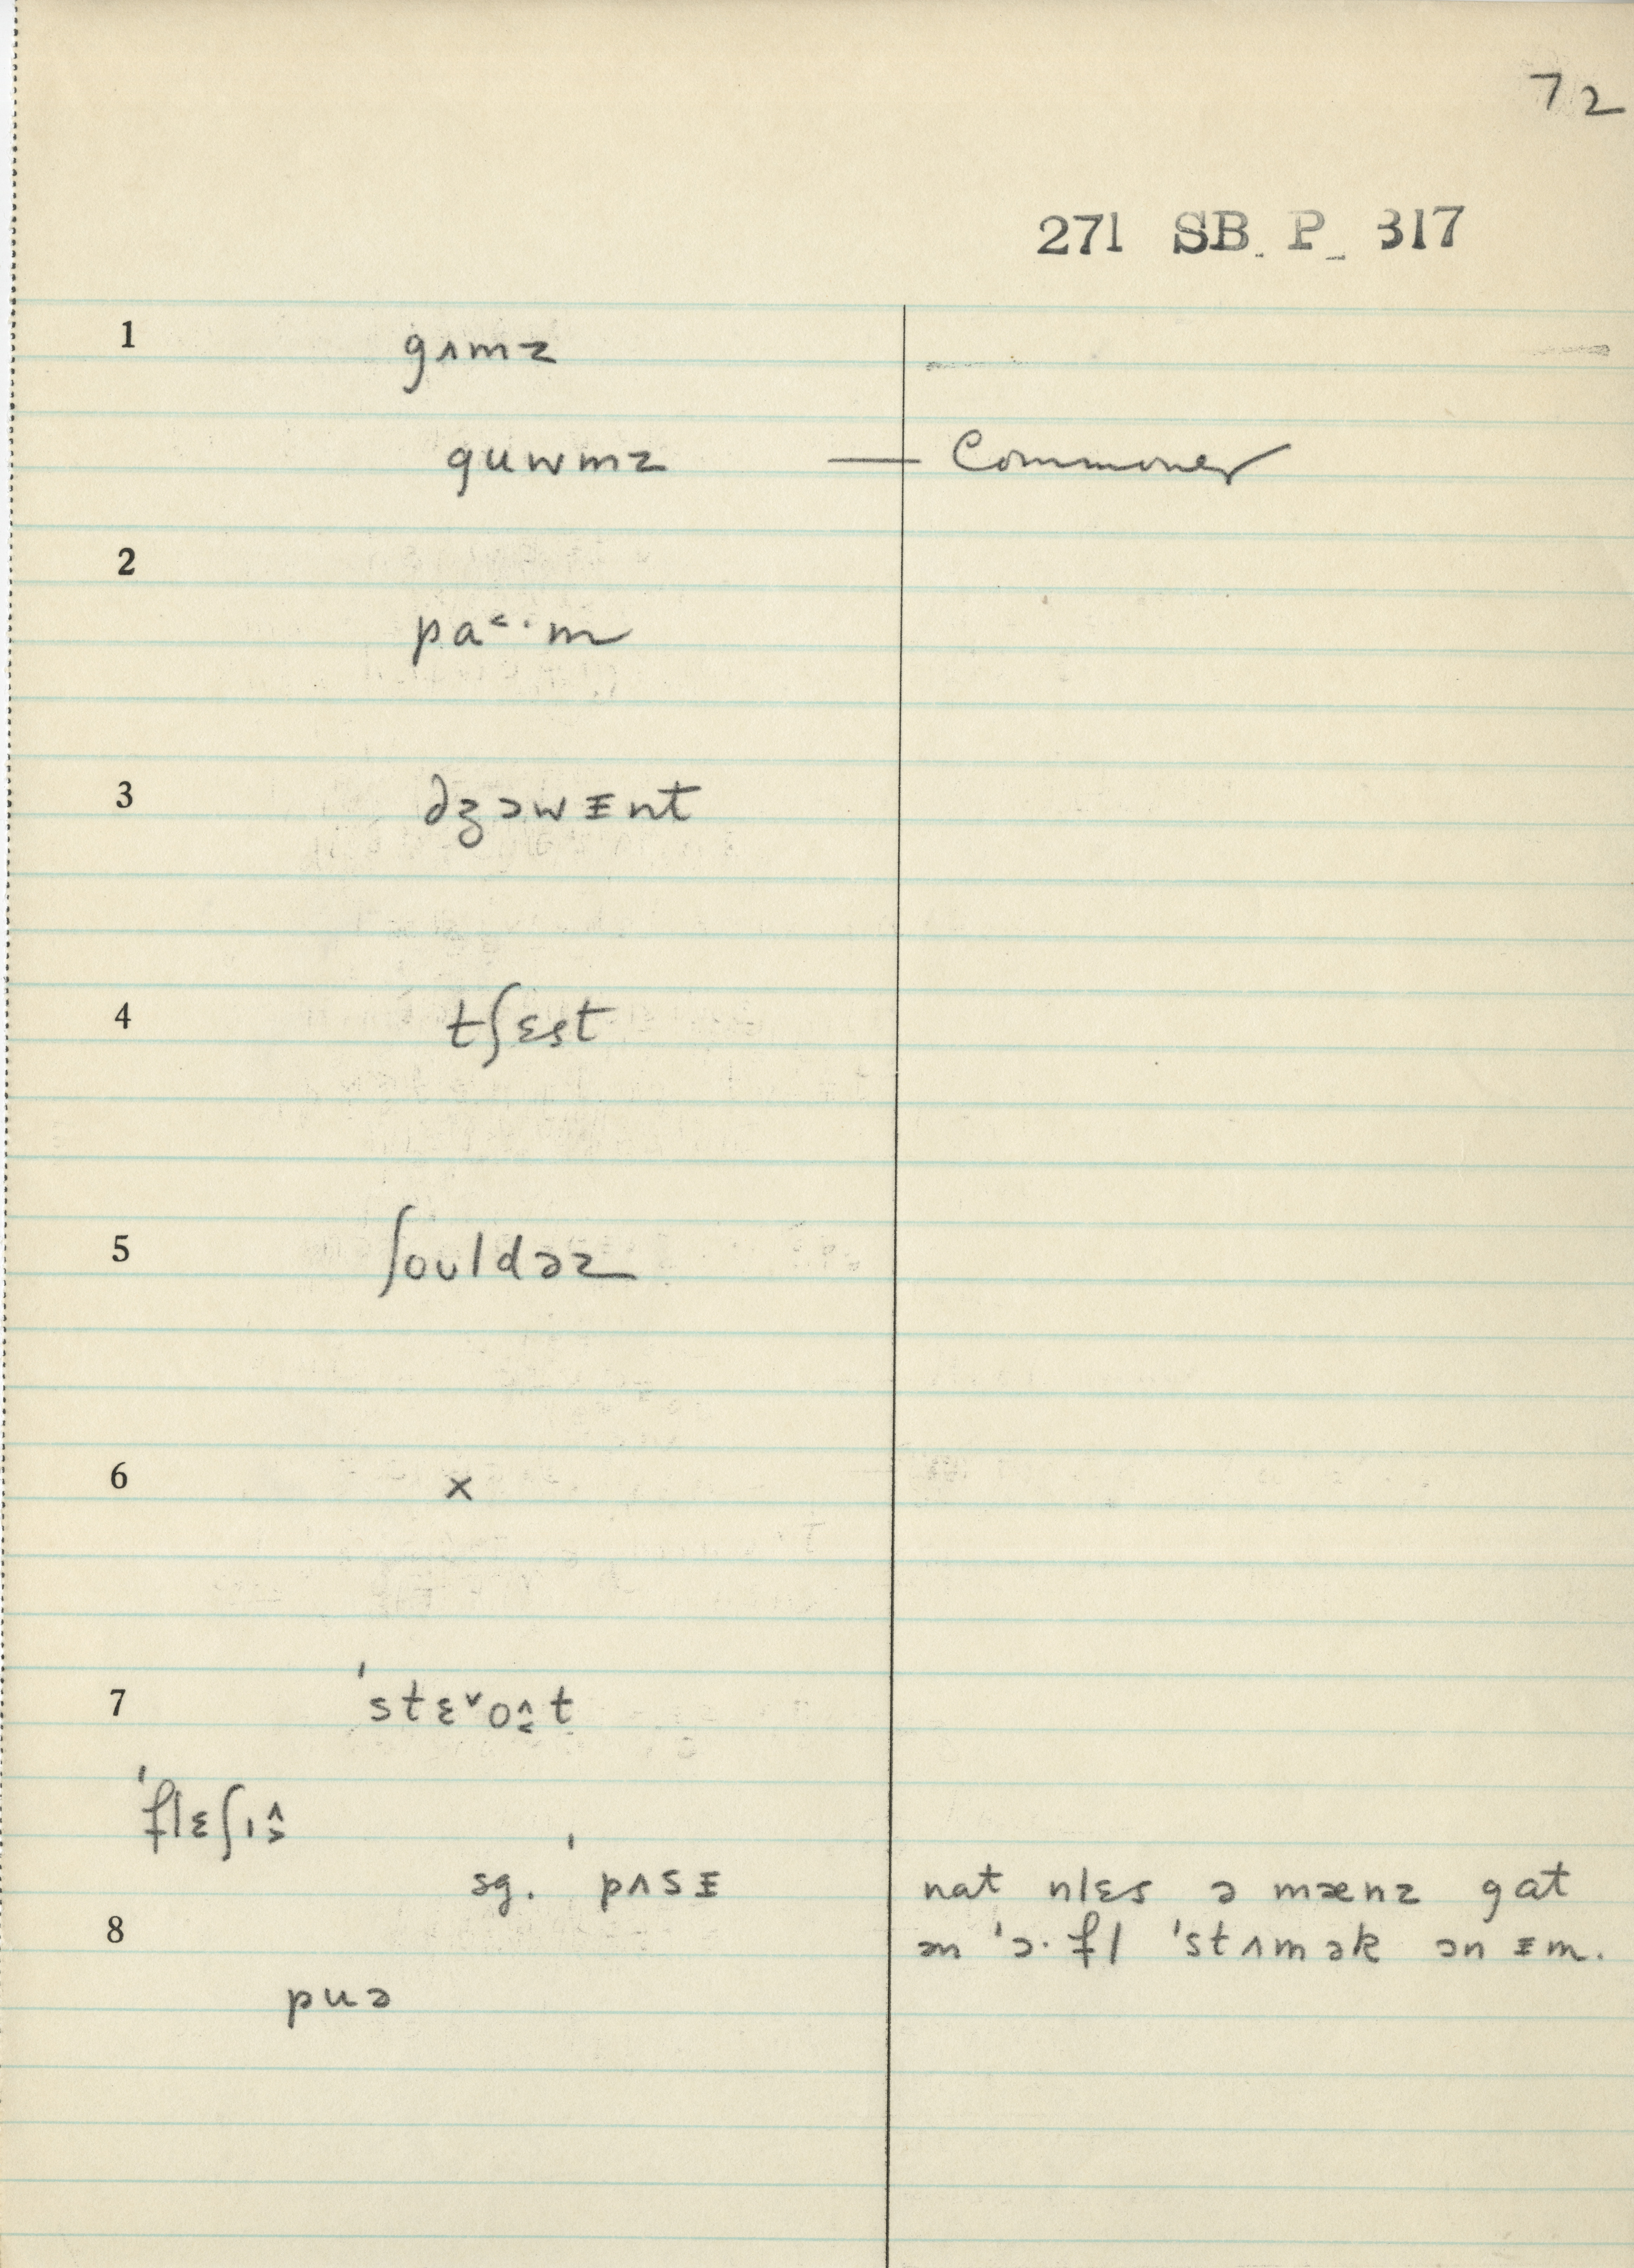 72
271 SB P 317
1 gʌmz
guwmz — Commoner
2
pa˂·m
3 dʒɔwᵻnt
4 tʃɛst
5 ʃouldəz
6 x
7 ˈstɛ˅o̭t
ˈflɛʃɪ
sg. ˈpʌsᵻ nat nlɛs ə mænz gat
8 ən ˈɔ·fl ˈstʌmək ɔn ᵻm.
puə